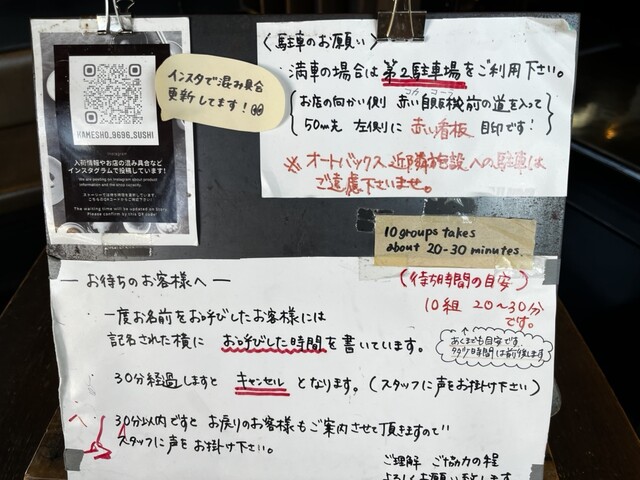 KAMESHO_9696.SUSHI
Instagram
入荷情報やお店の混み具合など
インスタグラムで投稿しています!
We are posting on Instagram about product
information and the store correctly.
ストーリーでは待ち時間を更新しています。
こちらのQRコードからご確認下さい!
The waiting time will be updated on Story.
Please confirm by this QR code!
インスタで混み具合
更新してます!
〈駐車のお願い〉
満車の場合は第2駐車場をご利用下さい。
コカ・コーラ
お店の向かい側 赤い自販機前の道を入って
50m先 左側に 赤い看板 目印です!
※オートバックス近隣施設への駐車は
ご遠慮下さいませ。
10 groups takes
about 20-30 minutes.
— お待ちのお客様へ —
(待ち時間の目安)
10組 20〜30分
です。
あくまでも目安です。
多少時間は前後します
一度お名前をお呼びしたお客様には
記名された横に お呼びした時間を書いています。
30分経過しますと キャンセル となります。(スタッフに声をお掛け下さい)
30分以内ですと お戻りのお客様もご案内させて頂きますので
スタッフに声をお掛け下さい。
ご理解 ご協力の程
よろしくお願い致します